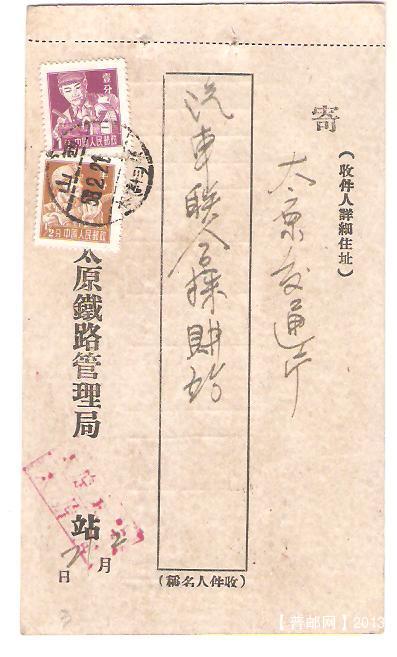 寄
(收件人詳細住址)
太原交通厅
汽車联合採購站
(收件人名稱)
太原鐵路管理局
站
2月21日
壹分
1分 中国人民邮政
2分 中国人民邮政
58.2.21
【普邮网】2013